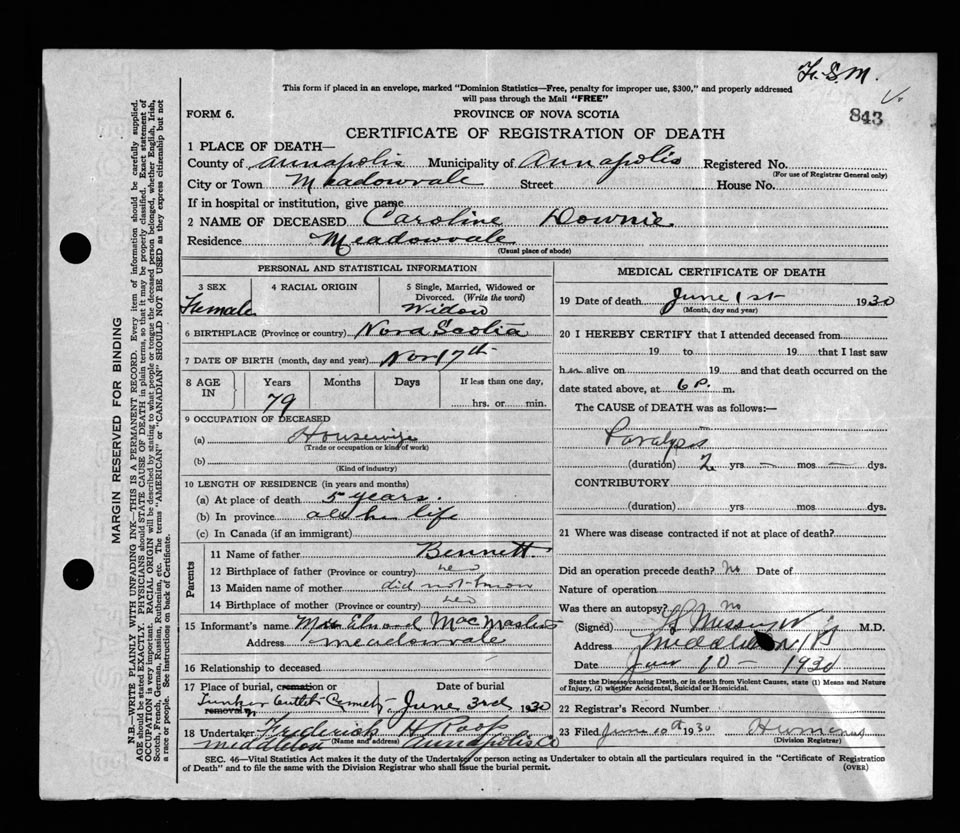 F. S. M.
This form if placed in an envelope, marked "Dominion Statistics—Free, penalty for improper use, $300," and properly addressed
will pass through the Mail "FREE"
843
FORM 6.
PROVINCE OF NOVA SCOTIA
CERTIFICATE OF REGISTRATION OF DEATH
1 PLACE OF DEATH—
County of Annapolis Municipality of Annapolis Registered No.
(For use of Registrar General only)
City or Town Meadowvale Street House No.
If in hospital or institution, give name
2 NAME OF DECEASED Caroline Downie
Residence Meadowvale
(Usual place of abode)
PERSONAL AND STATISTICAL INFORMATION
3 SEX 4 RACIAL ORIGIN 5 Single, Married, Widowed or
Divorced. (Write the word)
Female Widow
6 BIRTHPLACE (Province or country) Nova Scotia
7 DATE OF BIRTH (month, day and year) Nov 17th
8 AGE IN Years Months Days If less than one day,
79 hrs. or min.
9 OCCUPATION OF DECEASED
(a) Housewife
(Trade or occupation or kind of work)
(b)
(Kind of industry)
10 LENGTH OF RESIDENCE (in years and months)
(a) At place of death 5 years.
(b) In province all her life
(c) In Canada (if an immigrant)
Parents
11 Name of father Bennett
12 Birthplace of father (Province or country)
13 Maiden name of mother did not know
14 Birthplace of mother (Province or country)
15 Informant's name Mrs MacMaster
Address Meadowvale
16 Relationship to deceased
17 Place of burial, cremation or removal Date of burial
Cemetery June 3rd 1930
18 Undertaker Frederick H Roop
(Name and address)
Middleton Annapolis Co
MEDICAL CERTIFICATE OF DEATH
19 Date of death June 1st 1930
(Month, day and year)
20 I HEREBY CERTIFY that I attended deceased from
19 to 19 that I last saw
her alive on 19 and that death occurred on the
date stated above, at 6 P. m.
The CAUSE of DEATH was as follows:—
Paralysis
(duration) 2 yrs — mos — dys.
CONTRIBUTORY
(duration) yrs. mos. dys.
21 Where was disease contracted if not at place of death?
Did an operation precede death? No Date of
Nature of operation
Was there an autopsy? no
(Signed) M.D.
Address Middleton
Date June 10 — 1930
State the Disease causing Death, or in death from Violent Causes, state (1) Means and Nature
of Injury, (2) whether Accidental, Suicidal or Homicidal.
22 Registrar's Record Number
23 Filed June 10th 1930
(Division Registrar)
SEC. 46—Vital Statistics Act makes it the duty of the Undertaker or person acting as Undertaker to obtain all the particulars required in the "Certificate of Registration
of Death" and to file the same with the Division Registrar who shall issue the burial permit.
(OVER)
MARGIN RESERVED FOR BINDING
N.B.—WRITE PLAINLY WITH UNFADING INK—THIS IS A PERMANENT RECORD. Every item of information should be carefully supplied.
AGE should be stated EXACTLY. PHYSICIANS should STATE CAUSE OF DEATH in plain terms, so that it may be properly classified. Exact statement of
OCCUPATION is very important. RACIAL ORIGIN will be described by stating to what people or tongue the deceased person belonged, whether English, Irish,
Scotch, French, German, Russian, Ruthenian, etc. The terms "AMERICAN" or "CANADIAN" SHOULD NOT BE USED as they express citizenship but not
a race or people. See instructions on back of Certificate.